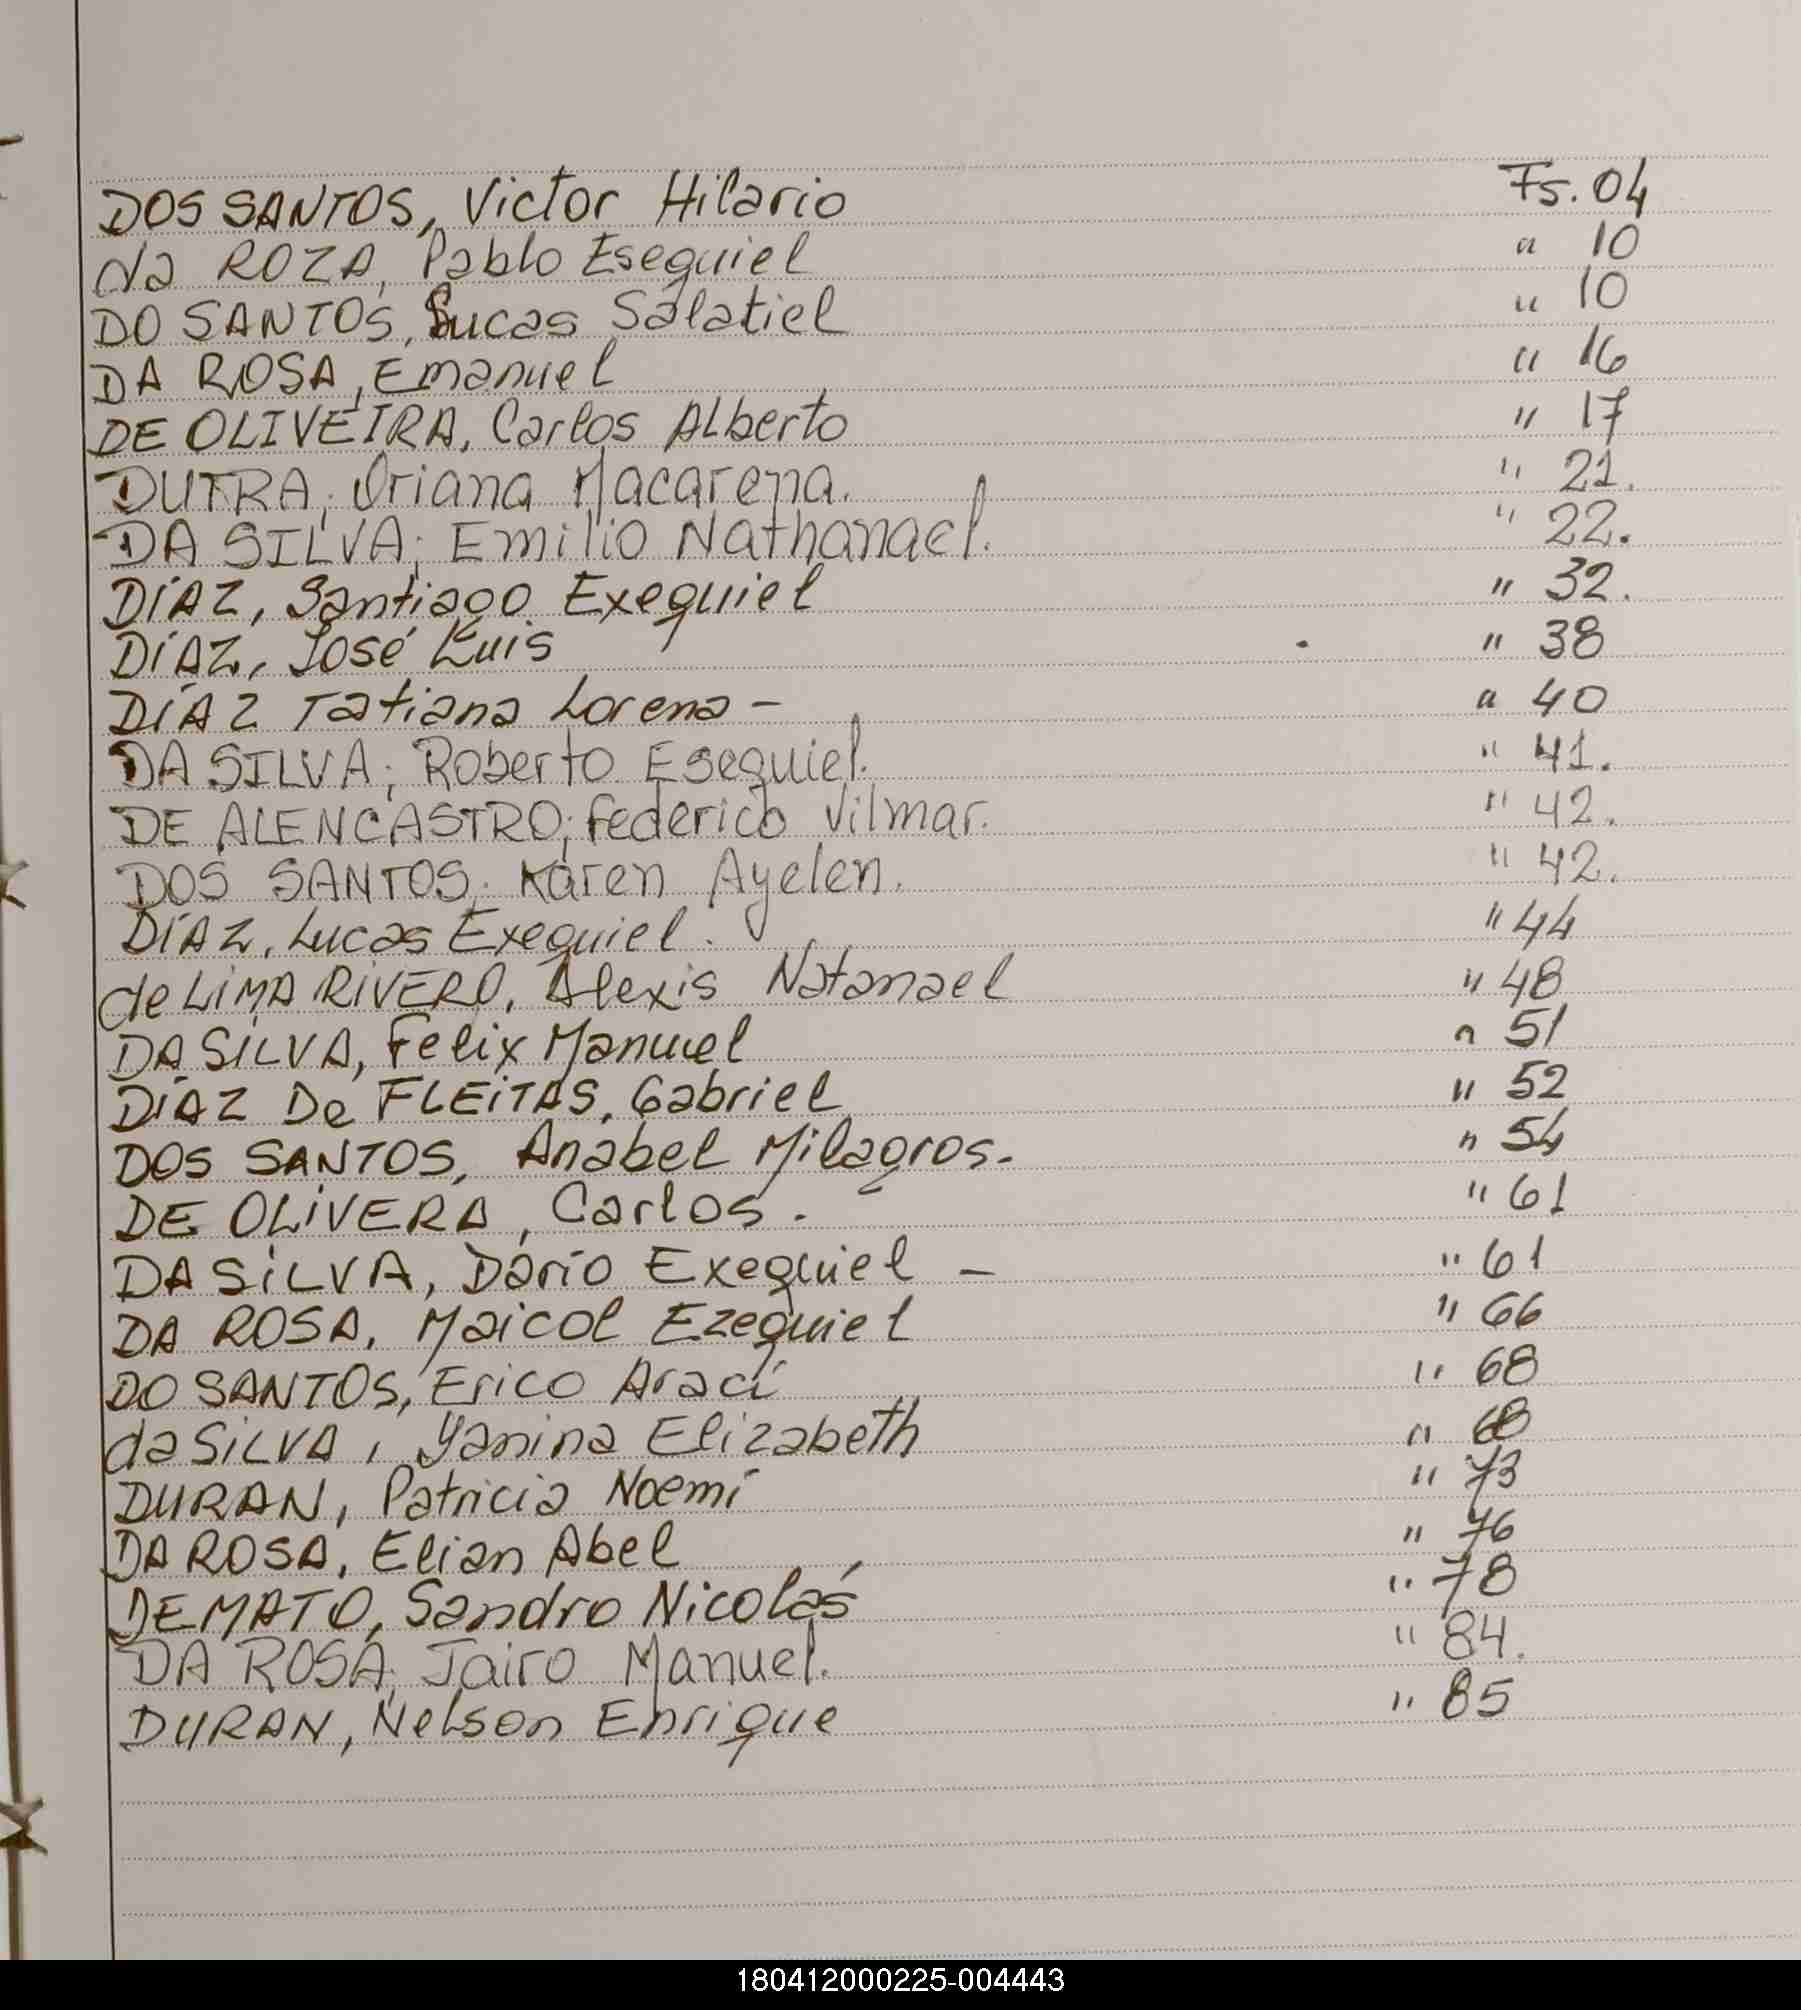 DOS SANTOS, Victor Hilario Fs. 04
da ROZA, Pablo Esequiel " 10
DO SANTOS, Lucas Salatiel " 10
DA ROSA, Emanuel " 16
DE OLIVEIRA, Carlos Alberto " 17
DUTRA; Oriana Macarena. " 21.
DA SILVA; Emilio Nathanael. " 22.
DÍAZ, Santiago Exequiel " 32.
DÍAZ, José Luis " 38
DÍAZ Tatiana Lorena - " 40
DA SILVA; Roberto Esequiel. " 41.
DE ALENCASTRO; Federico Vilmar. " 42.
DOS SANTOS; Karen Ayelen. " 42.
DÍAZ, Lucas Exequiel. " 44
de LIMA RIVERO, Alexis Natanael " 48
DA SILVA, Felix Manuel " 51
DÍAZ De FLEITAS, Gabriel " 52
DOS SANTOS, Anabel Milagros. " 54
DE OLIVERA, Carlos. " 61
DA SILVA, Dario Exequiel - " 61
DA ROSA, Maicol Ezequiel " 66
DO SANTOS, Erico Arací " 68
da SILVA, Yanina Elizabeth " 68
DURAN, Patricia Noemí " 73
DA ROSA, Elian Abel " 76
DE MATO, Sandro Nicolás " 78
DA ROSA; Jairo Manuel. " 84.
DURAN, Nelson Enrique " 85
180412000225-004443